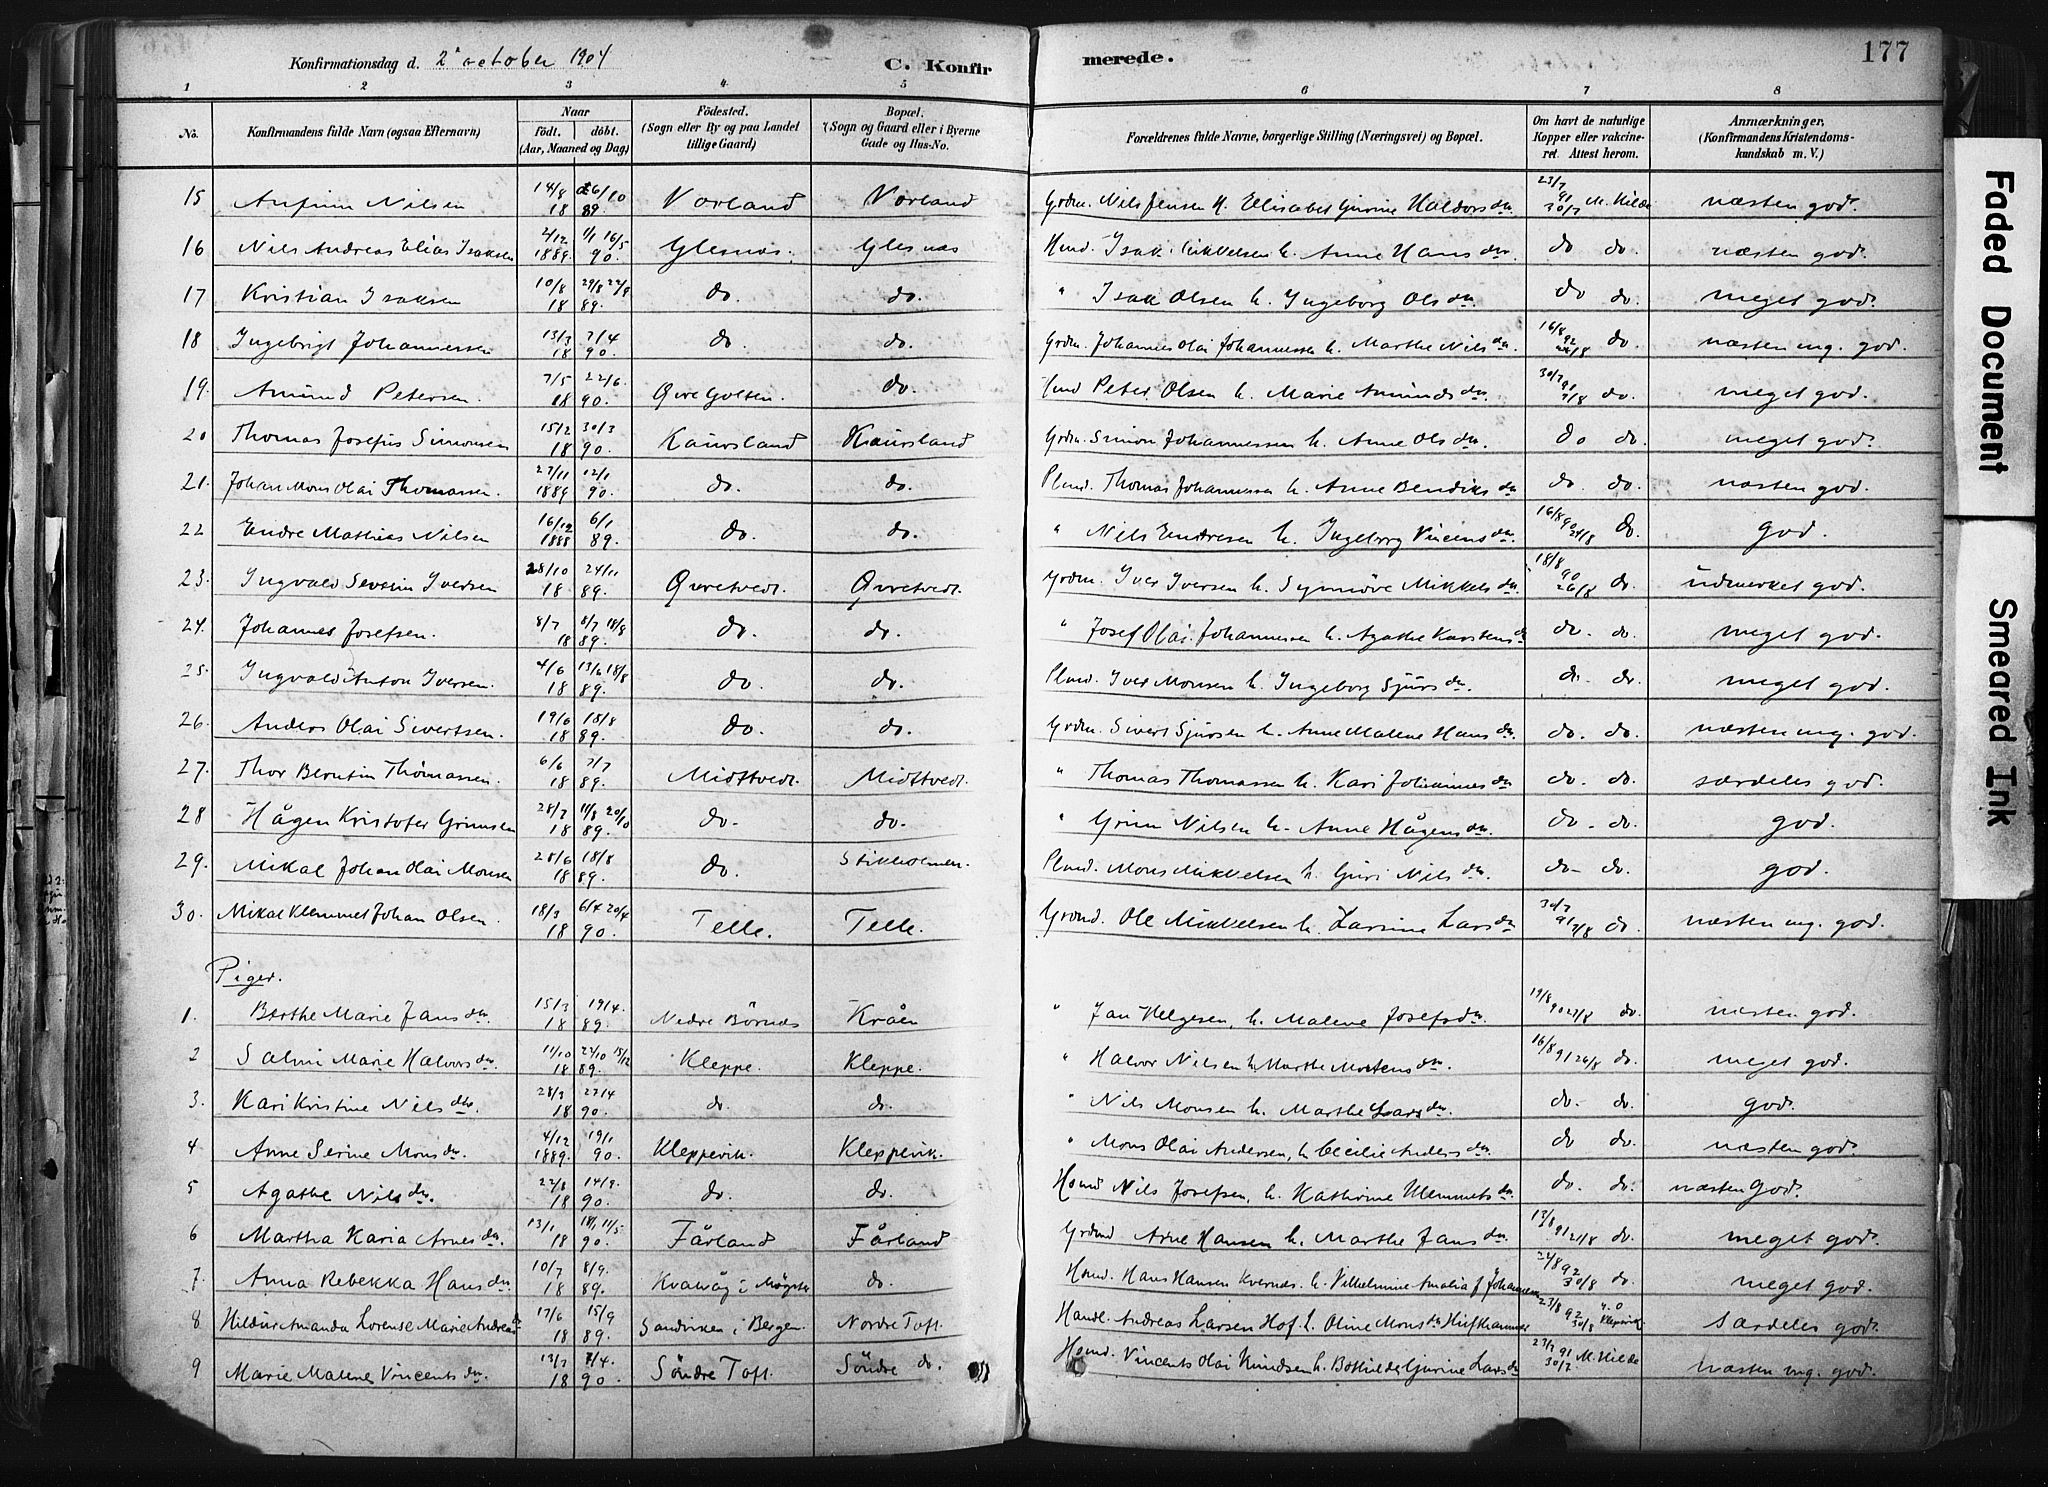 Konfirmationsdag d. 2' october 1904 C. Konfirmerede. 177
1 2 3 4 5 6 7 8
No. Konfirmandens fulde Navn (ogsaa Efternavn) Naar født. døbt. (Aar, Maaned og Dag) Födested. (Sogn eller By og paa Landet tillige Gaard) Bopæl. (Sogn og Gaard eller i Byerne Gade og Hus-No. Forældrenes fulde Navne, borgerlige Stilling (Næringsvei) og Bopæl. Om havt de naturlige Kopper eller vakcineret. Attest herom. Anmærkninger, (Konfirmandens Kristendomskundskab m. V.)
15 Anfinn Nilsen 14/8 26/10 18 89. Vorland Vorland Grdm. Nils Jensen h. Elisabet Gurine Haldorsdn 23/7 91 30/7 M. Hilde næsten god.
16 Nils Andreas Elias Isaksen 2/12 1/1 16/5 1889. 90. Glesnæs. Glesnæs Hmd. Isak Mikkelsen h. Anne Hansdn do do. næsten god.
17 Kristian Isaksen 10/8 29/8 18 89. do. do. " Isak Olsen h. Ingeborg Olsdn. do do. meget god.
18 Ingebrigt Johannessen 13/3 7/4 18 90. do. do. Grdm. Johannes Olai Johannessen h. Marthe Nilsdn. 16/8 92 do. næsten mg. god.
19. Amund Petersen. 7/5 22/6. 18 90. Øvre Golten. do. Hmd Peter Olsen h. Marie Amundsdn. 30/7 91 7/8 do. meget god.
20 Thomas Josefus Simonsen 15/2 30/3 18 90. Kaursland Kaursland Grdm. Simon Johannessen h. Anne Olsdn. do do. meget god.
21. Johan Mons Olai Thomassen. 27/11 12/1 1889 90. do. do. Plmd. Thomas Johannessen h. Anne Bendiksdn do. do. næsten god.
22 Endre Mathias Nilsen 16/12 6/1 1888 89. do. do. " Nils Endresen h. Ingeborg Vincensdn. 16/8 90 24/8 do. god.
23. Ingvald Severin Iversen 28/10 24/11 18 89. Øvretvedt. Øvretvedt. Grdm. Iver Iversen h. Synnöve Mikkelsdn 18/8 90 26/8 do. udmerket god.
24. Johannes Josefsen. 8/7 8/7 18/8 18 89. do. do. " Josef Olai Johannessen h. Agathe Karstensdn do. do. meget god.
25. Ingvald Anton Iversen. 4/6 13/6 18/8 18 89. do. do. Plmd. Iver Monsen h. Ingeborg Sjursdn. do. do. meget god.
26. Anders Olai Sivertsen. 19/6 18/8 18 89. do. do. Grdm. Sivert Sjursen h. Anne Malene Hansdn do. do. næsten mg. god.
27. Thor Berntin Thomassen. 6/6 7/7 18 89. Midttvedt. Midttvedt. " Thomas Thomassen h. Kari Johannesdn do. do. særdeles god.
28 Hågen Kristofer Grimsen 28/7 11/8 20/10 18 89. do. do. " Grim Nilsen h. Anne Hågensdn. do. do. god.
29. Mikal Johan Olai Monsen 28/6 18/8 18 89. do. Stikholmen. Plmd. Mons Mikkelsen h. Guri Nilsdn. do. do. god.
30. Mikal Klemmet Johan Olsen. 18/3 6/4 20/4 18 90. Telle. Telle. Grdmd. Ole Mikkelsen h. Larsine Larsdn 30/7 91 7/8 do. næsten mg. god.
Piger.
1. Berthe Marie Jansdn. 15/3 19/4. 18 89. Nedre Börnes Kråen " Jan Helgesen, h. Malene Josefsdn. 19/8 90 27/8 do. næsten god.
2 Salmi Marie Halvorsdn. 11/10 22/10 15/12 18 89. Kleppe. Kleppe. " Halvor Nilsen h. Marthe Mortensdn. 16/8 91 24/8 do. meget god.
3. Kari Kristine Nilsdtr. 28/3 27/4 18 90. do. do. " Nils Monsen h. Marthe Larsdn. do. do. god.
4 Anne Serine Monsdn. 4/12 19/1 1889. 90. Kleppevik. Kleppevik. " Mons Olai Andersen, h. Cecilie Andersdn. do do. næsten god.
5 Agathe Nilsdn. 22/8 14/9. 18 90. do. do. Hmd Nils Josefsen, h. Kathrine Klemmetsdn. do. do. næsten god.
6 Martha Karia Arnesdn. 13/1 18/1 11/5 18 90. Fårland Fårland Grdmd Arne Hansen h. Marthe Jansdn. 13/8 91 21/8 do. meget god.
7. Anna Rebekka Hansdn. 10/7 8/9. 18 89. Kvalvåg i Møgster do. Hmd. Hans Hansen Kvernæs. h. Vilhelmine Amalia f. Johannesen 24/8 92 30/8 do. meget god.
8 Hildur Amanda Lorense Marie Andreasdn 17/6 15/9 18 89. Sandviken i Bergen. Nordre Toft. Handl. Andreas Larsen Hof h. Oline Monsdn 23/8 92 30/8 særdeles god.
9 Marie Malene Vincentsdn. 13/3 7/4. 18 90. Söndre Toft. Söndre do. Hmd. Vincents Olai Knudsen h. Bothilde Gurine Larsdn 23/7 91 30/7 M. Hilde næsten mg. god.
Faded Document
Smeared Ink